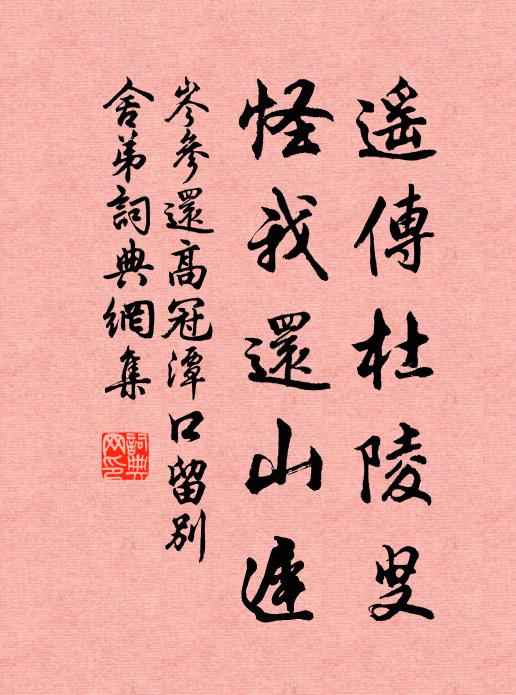 遥傳杜陵叟
怪我還山遲
岑參還高冠潭口留別
舍弟詞典網集
詞典网印